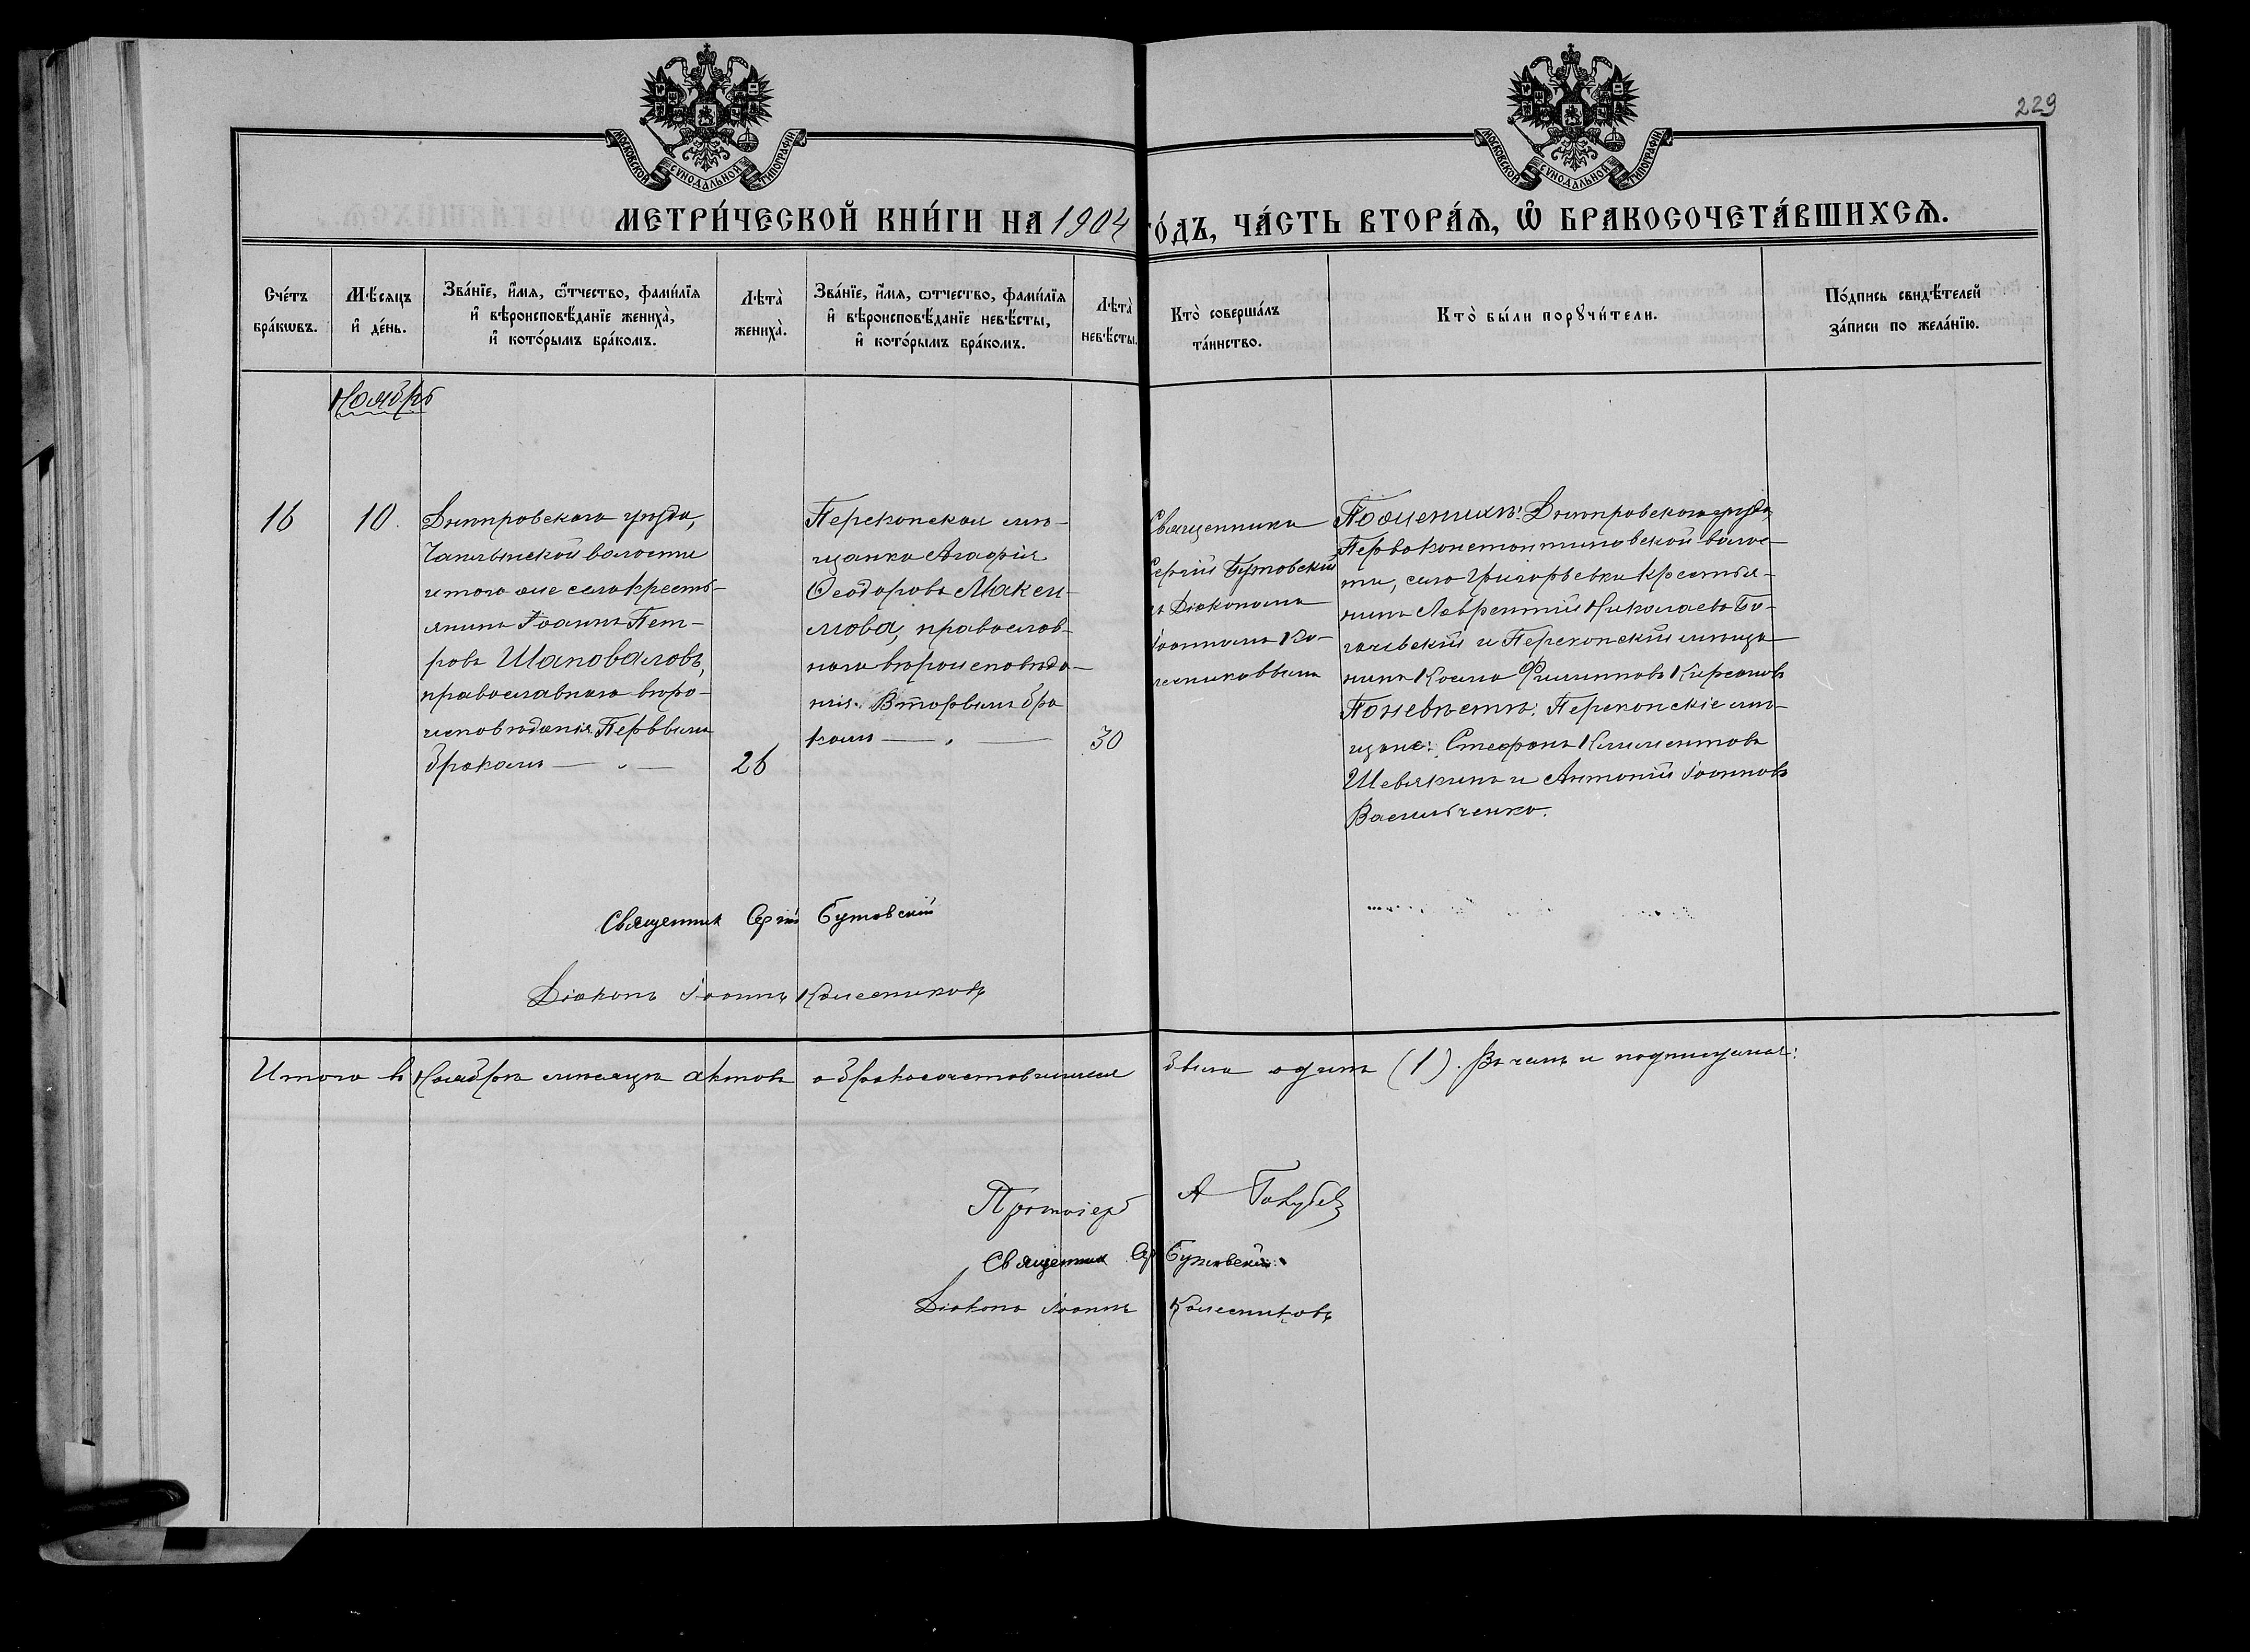 229
МОСКОВСКОЙ СѴНОДАЛЬНОЙ ТИПОГРАФІИ
МОСКОВСКОЙ СѴНОДАЛЬНОЙ ТИПОГРАФІИ
МЕТРИ́ЧЕСКОЙ КНИ́ГИ НА 1904 ГО́ДЪ, ЧА́СТЬ ВТОРА́Ѧ, Ѽ БРАКОСОЧЕТА́ВШИХСѦ.
Сче́тъ
бра́кωвъ.
Мѣ́сяцъ
и҆ де́нь.
Зва́нїе, и҆́мя, ѻ҆́тчество, фами́лїя
и҆ вѣроисповѣ́данїе жениха̀,
и҆ кото́рымъ бра́комъ.
Лѣта̀
жениха̀.
Зва́нїе, и҆́мя, ѻ҆́тчество, фами́лїя
и҆ вѣроисповѣ́данїе невѣ́сты,
и҆ кото́рымъ бра́комъ.
Лѣта̀
невѣ́сты.
Кто̀ соверша́лъ
та́инство.
Кто̀ бы́ли порꙋчи́тели.
По́дпись свидѣ́телей
за́писи по жела́нїю.
Ноябрь
16
10.
Днѣпровскаго уѣзда,
Чаплынской волости
и того же села кресть-
янинъ Іоаннъ Пет-
ровъ Шаповаловъ,
православнаго вѣро-
исповѣданія. Первымъ
бракомъ — „ —
26
Перекопская мѣ-
щанка Агафія
Ѳеодорова Макси-
мова, православ-
наго вѣроисповѣда-
нія. Вторымъ бра
комъ — „ —
30
Священникъ
Сергій Бутовскій
съ Діакономъ
Іоанномъ Ко-
лесниковымъ
По женихѣ: Днѣпровскаго уѣзда,
Первоконстантиновской волос-
ти, села Григорьевки крестья-
нинъ Лаврентій Николаевъ Бо-
гачевскій и Перекопскій мѣща-
нинъ Косма Филипповъ Кирсановъ
По невѣстѣ: Перекопскіе мѣ-
щане: Стефанъ Климентовъ
Шевякинъ и Антоній Іоанновъ
Васильченко.
Священник Сергій Бутовскій
Діаконъ Іоаннъ Колесниковъ
Итого въ Ноябрѣ мѣсяцѣ актовъ о бракосочетавшихся было одинъ (1). Въ чемъ и подписуемся:
Протоіерей А Голубев
Священник Сер Бутовскій
Діаконъ Іоаннъ Колесниковъ